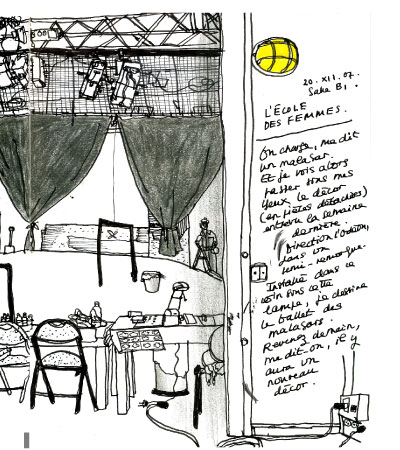 500
20.XII.07.
Salle B1.
L'ÉCOLE
DES FEMMES.
On charge, me dit
un malabar.
Et je vois alors
passer sous mes
yeux le décor
(en pièces détachées)
entrevu la semaine
dernière.
Direction l'Odéon,
dans un
semi-remorque.
Installé dans ce
coin sous cette
lampe, je dessine
le ballet des
malabars.
Revenez demain,
me dit-on, il y
aura un
nouveau
décor.